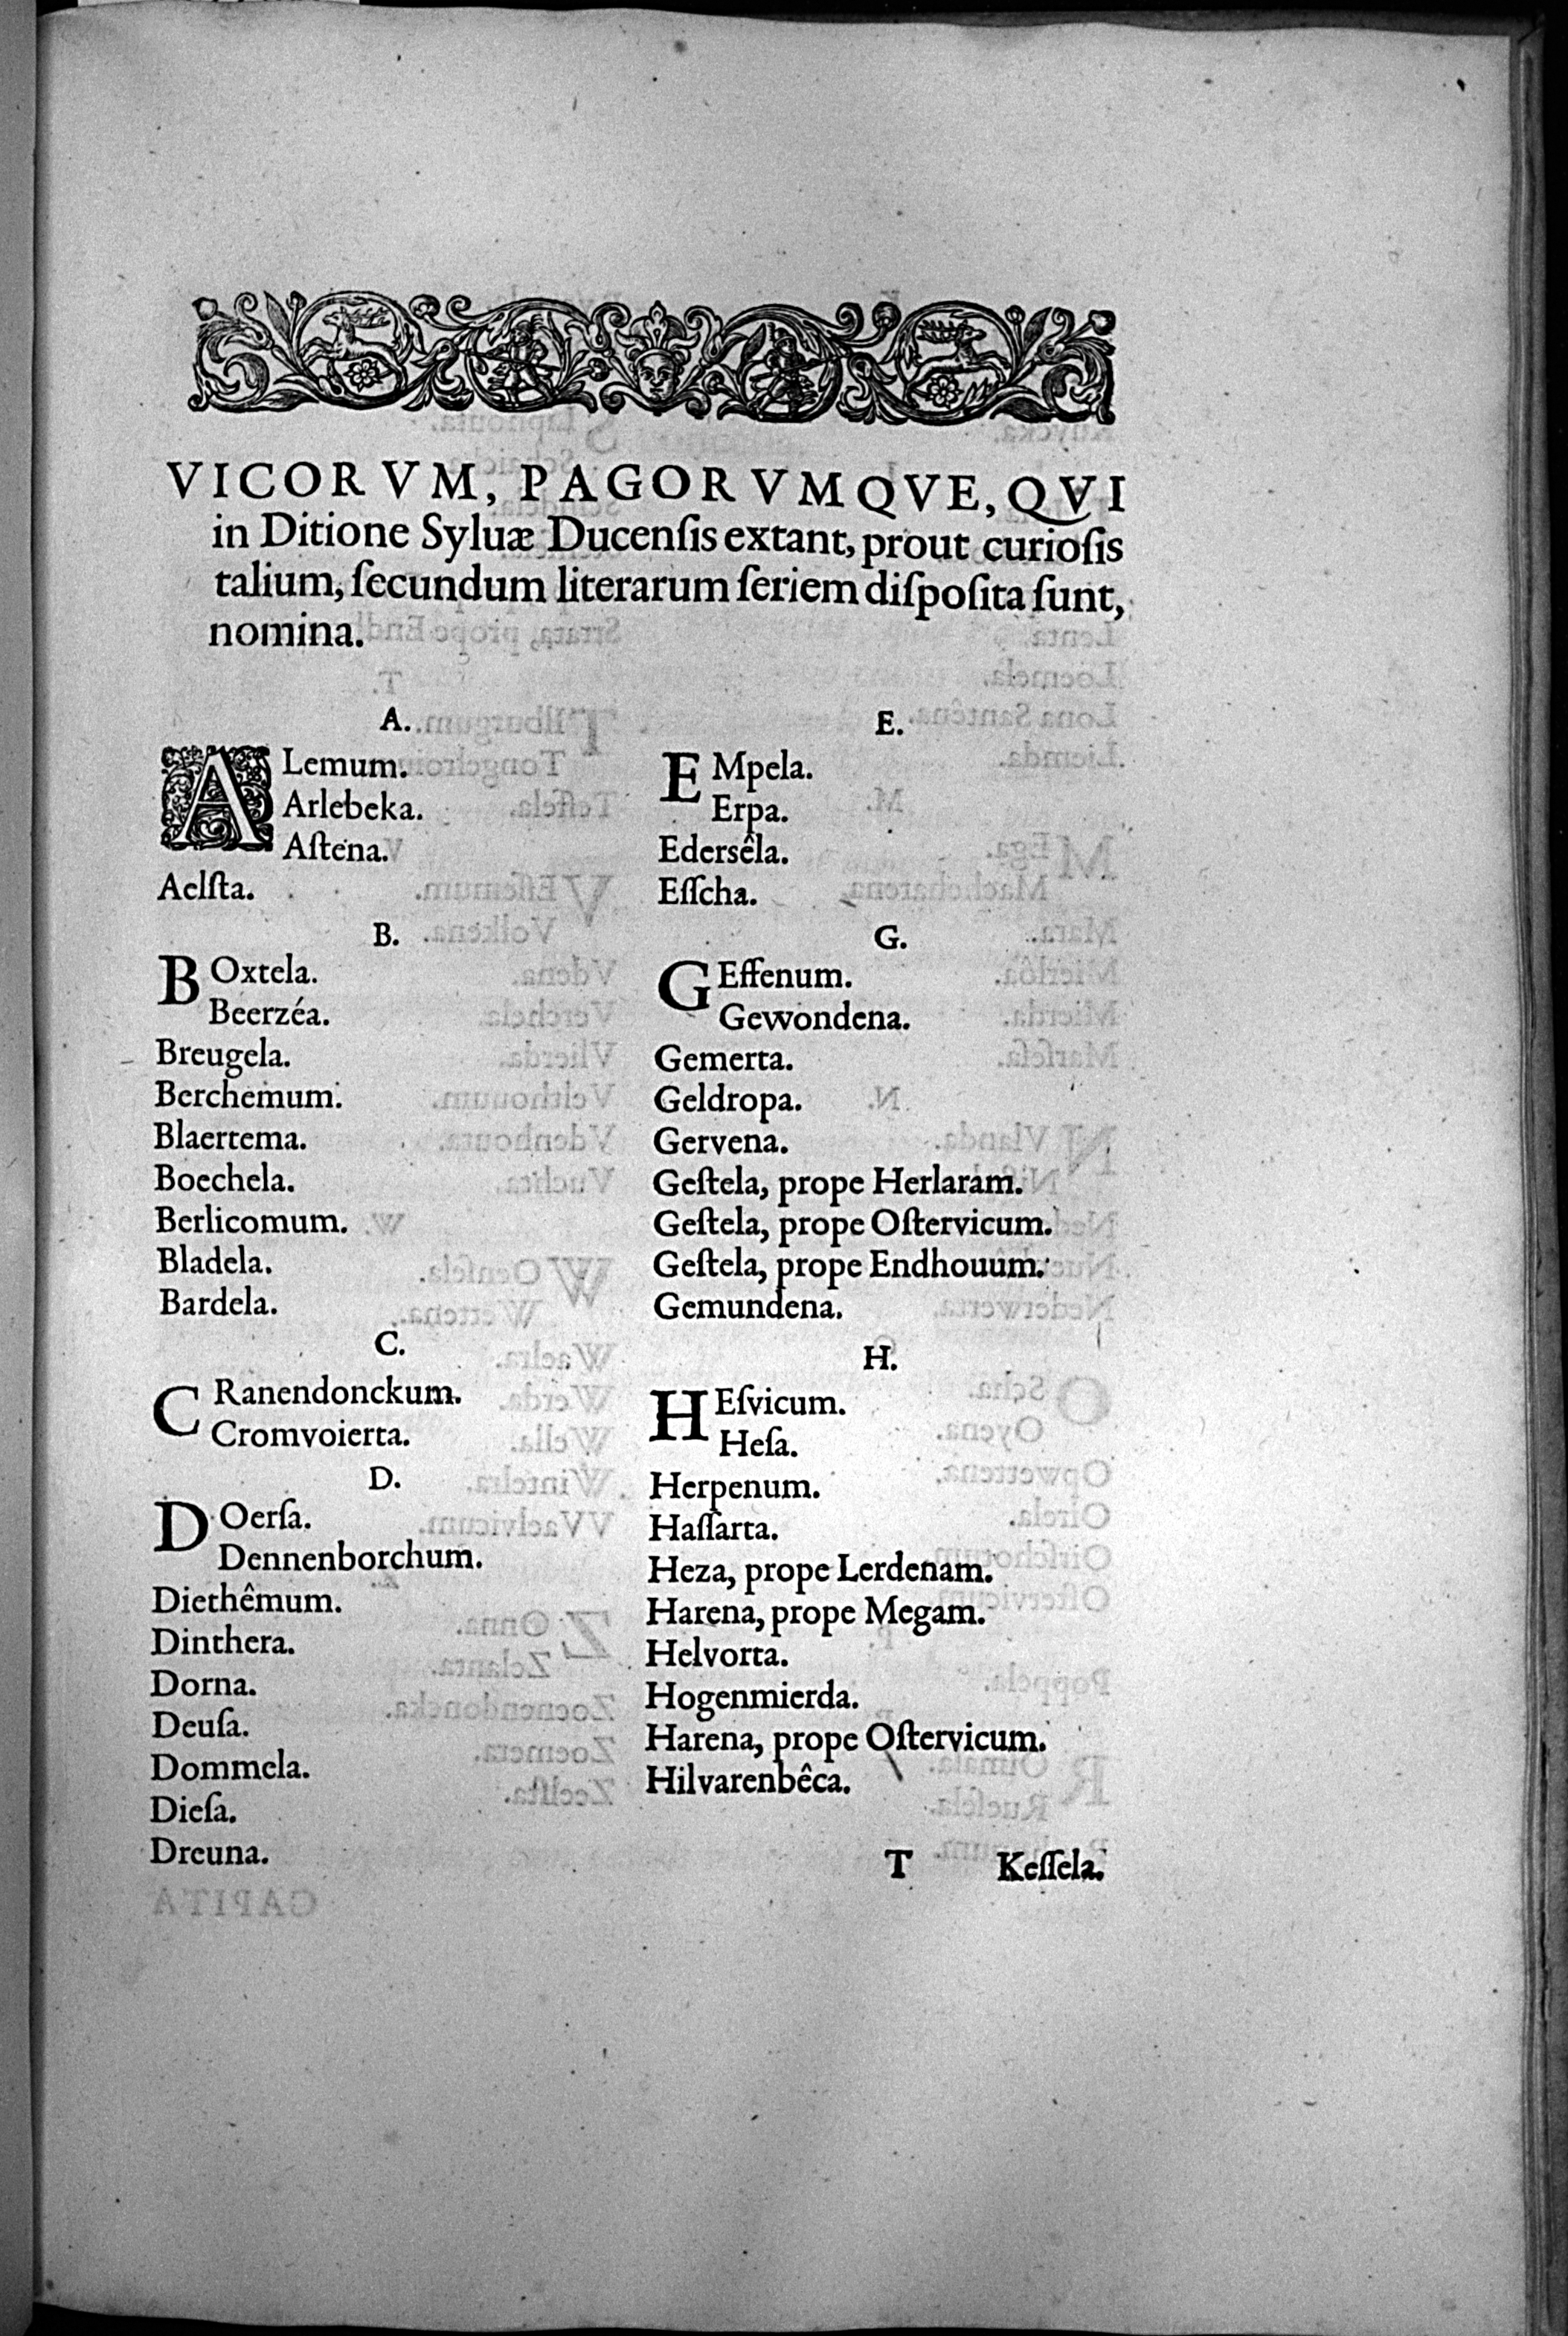 VICORVM, PAGORVMQVE, QVI
in Ditione Syluæ Ducenſis extant, prout curioſis
talium, ſecundum literarum ſeriem diſpoſita ſunt,
nomina.
A.
ALemum.
Arlebeka.
Aſtena.
Aelſta.
B.
BOxtela.
Beerzéa.
Breugela.
Berchemum.
Blaertema.
Boechela.
Berlicomum.
Bladela.
Bardela.
C.
CRanendonckum.
Cromvoierta.
D.
DOerſa.
Dennenborchum.
Diethêmum.
Dinthera.
Dorna.
Deuſa.
Dommela.
Dieſa.
Dreuna.
E.
EMpela.
Erpa.
Edersêla.
Eſſcha.
G.
GEffenum.
Gewondena.
Gemerta.
Geldropa.
Gervena.
Geſtela, prope Herlaram.
Geſtela, prope Oſtervicum.
Geſtela, prope Endhouum.
Gemundena.
H.
HEſvicum.
Heſa.
Herpenum.
Haſſarta.
Heza, prope Lerdenam.
Harena, prope Megam.
Helvorta.
Hogenmierda.
Harena, prope Oſtervicum.
Hilvarenbêca.
T Keſſela.